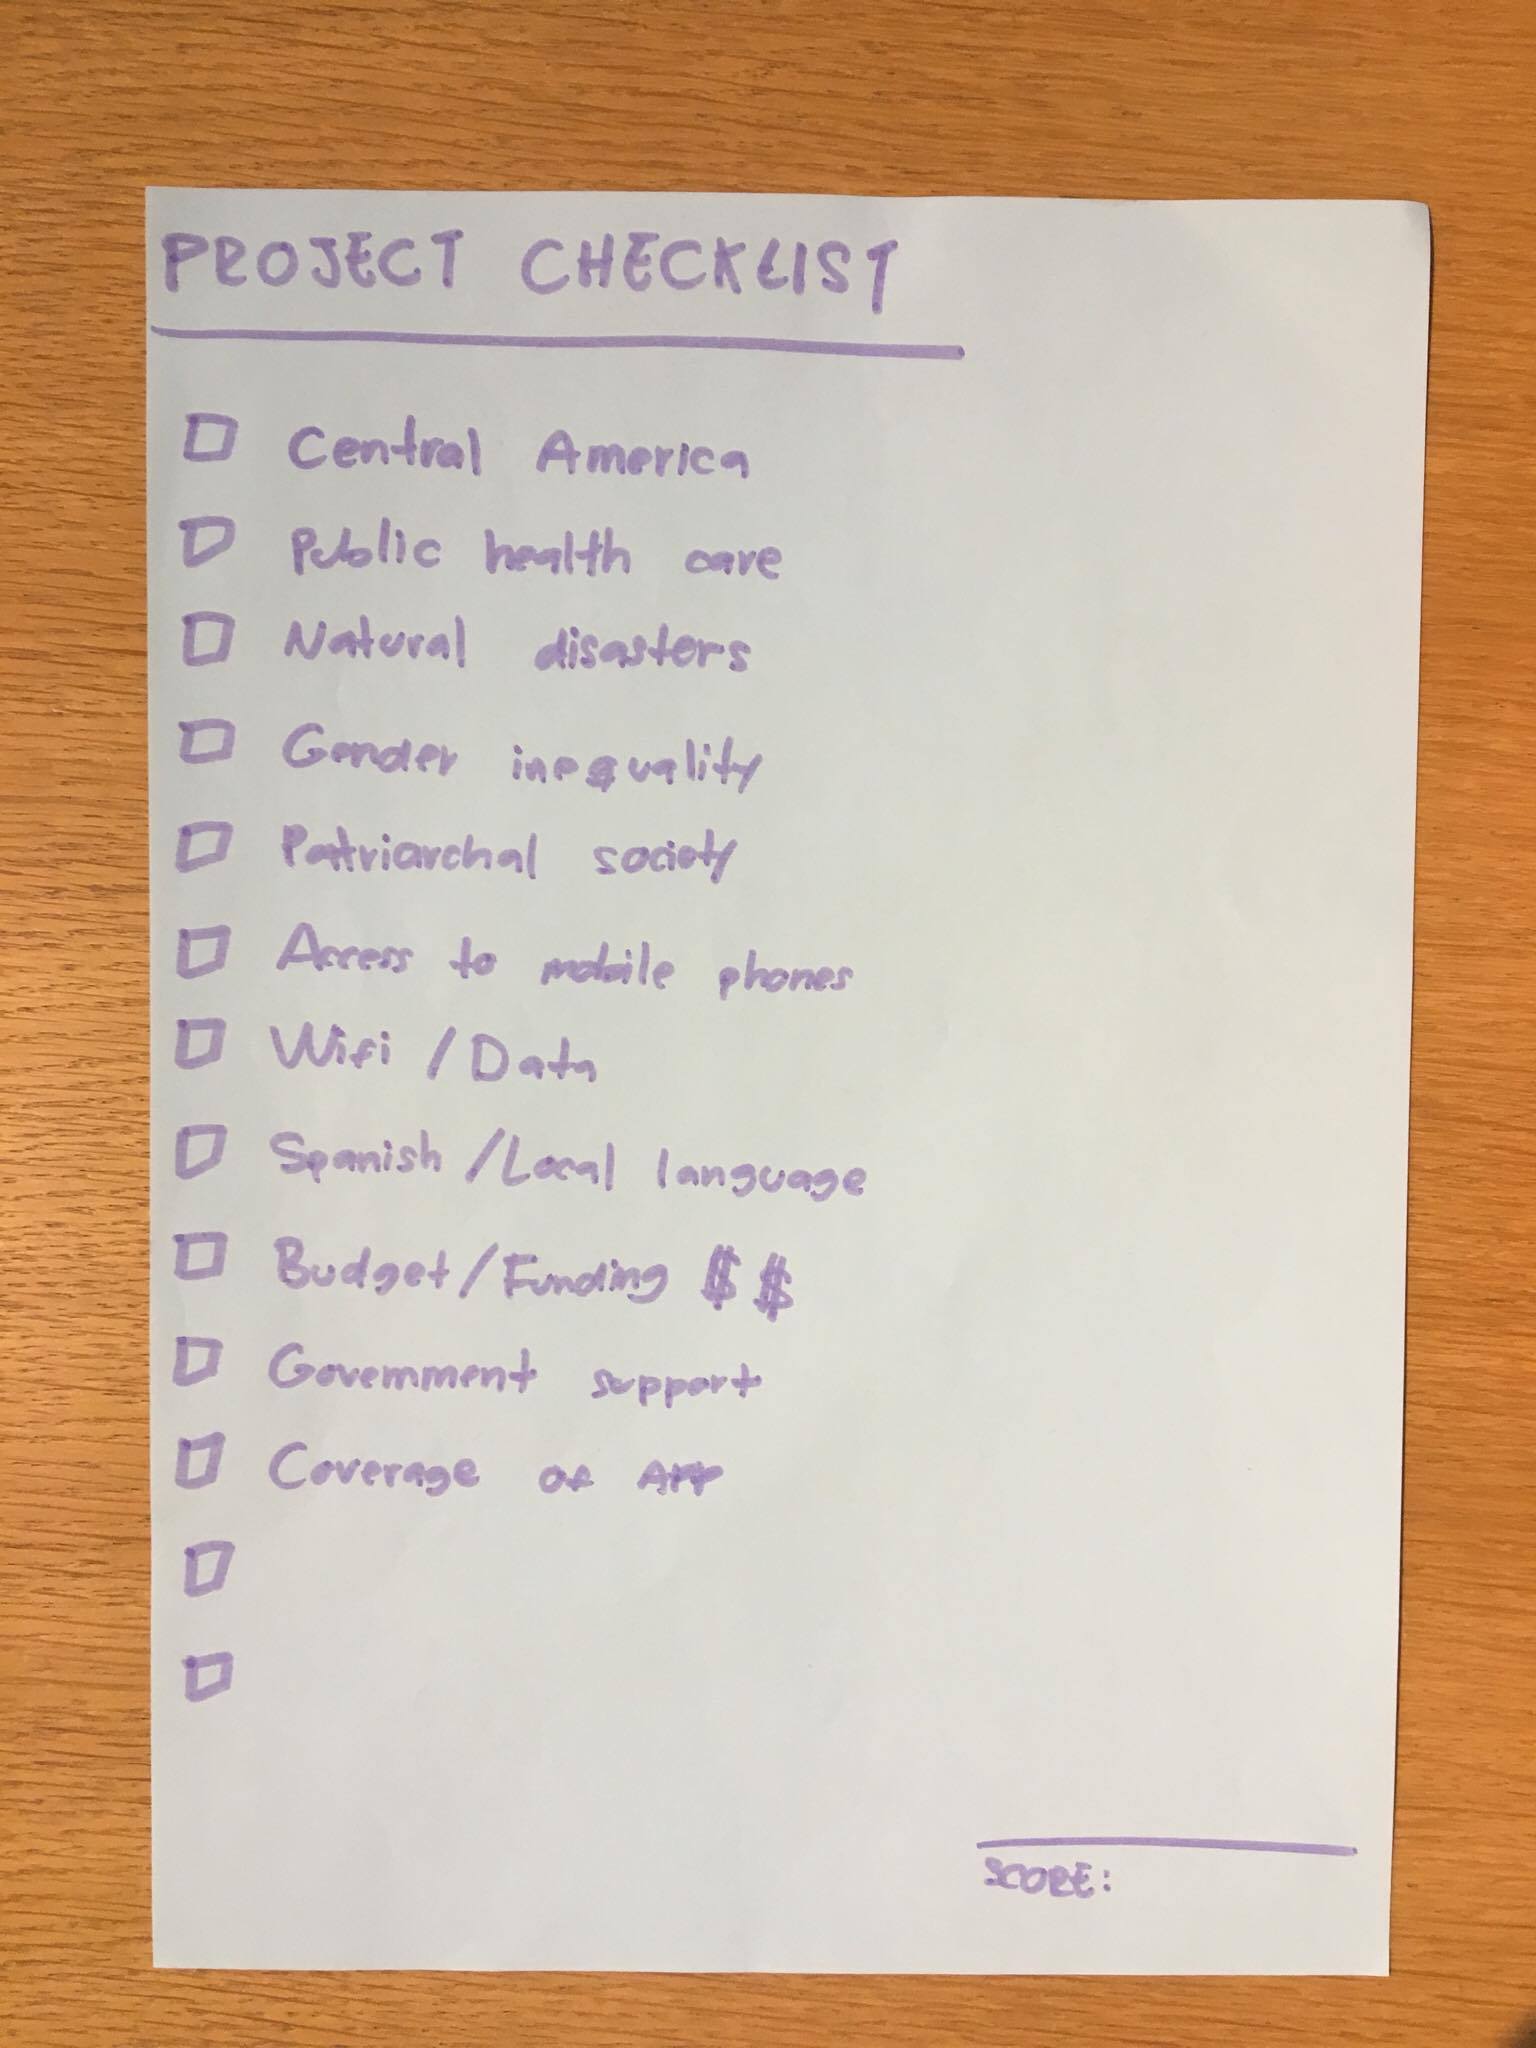 PROJECT CHECKLIST
Central America
Public health care
Natural disasters
Gender inequality
Patriarchal society
Access to mobile phones
Wifi / Data
Spanish / Local language
Budget / Funding $ $
Government support
Coverage of APP
SCORE: